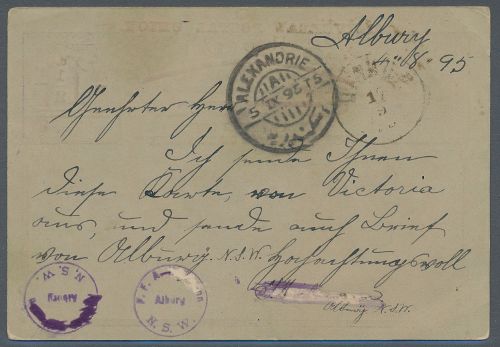 Albury
4. 8. 95
ALEXANDRIE
IX 95
Geehrter Herr
Ich sende Ihnen
diese Karte, von Victoria
aus, und sende auch Brief
von Albury. N.S.W. Hochachtungsvoll
N.S.W.
Albury
N.S.W.
Albury N.S.W.